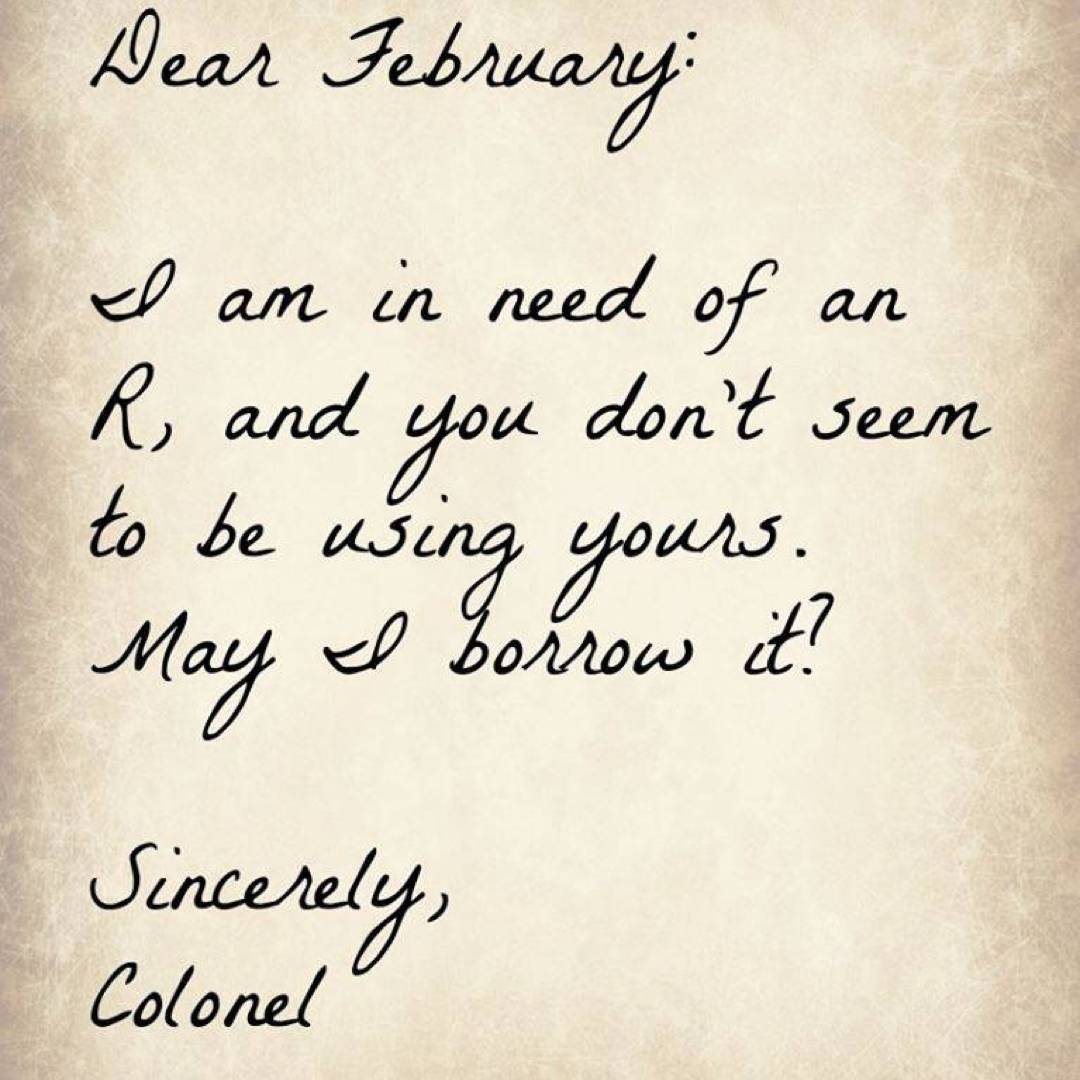 Dear February:
I am in need of an
R, and you don't seem
to be using yours.
May I borrow it?
Sincerely,
Colonel